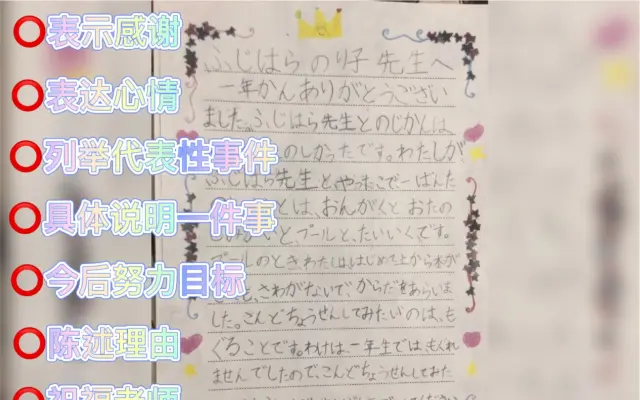 ⭕表示感谢
⭕表达心情
⭕列举代表性事件
⭕具体说明一件事
⭕今后努力目标
⭕陈述理由
⭕祝福老师
ふじはらのり子先生へ
一年かんありがとうござい
ました。ふじはら先生とのじかんは、
のしかったです。わたしが
ふじはら先生とやったことで一ばんた
とは、おんがくと おたの
と、プールと、たいいくです。
プールのとき、わたしははじめて上から水が
も、さわがないで、からだをあらいま
した。こんどちょうせんしてみたいのは、も
ぐることです。わけは、一年生では、もぐれ
ませんでしたので、こんどちょうせんしてみた